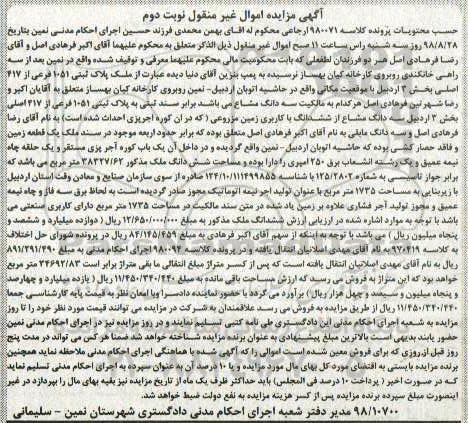 آگهی مزایده اموال غیر منقول نوبت دوم
حسب محتویات پرونده کلاسه ۹۸۰۰۷۱ اجرایی محکوم له اقای بهمن محمدی فرزند حسین اجرای احکام مدنی نمین بتاریخ
۹۸/۸/۲۸ روز سه شنبه راس ساعت ۱۱ صبح اموال غیر منقول ذیل الذکر متعلق به محکوم علیهما آقای اکبر فرهادی اصل و آقای
رضا فرهادی اصل هر دو فرزندان لطفعلی که بابت محکومیت مالی محکوم علیهما معرفی و توقیف شده واقع در نمین بعد از سه
راهی خانکندی روبروی کارخانه کیان بهساز نرسیده به پمپ بنزین آقای دنیا دیده عبارت از ملک پلاک ثبتی ۱۰۵۱ فرعی از ۴۱۷
اصلی بخش ۳ اردبیل با موقعیت مکانی واقع در حاشیه اتوبان اردبیل - نمین روبروی کارخانه کیان بهساز متعلق به آقایان اکبر و
رضا شهر نمین فرهادی اصل هر کدام به مالکیت سه دانگ مشاع می باشد برابر سند ثبتی به پلاک ثبتی ۱۰۵۱ فرعی از ۴۱۷ اصلی
بخش ۳ اردبیل سه دانگ مشاع از ششدانگ با کاربری زمین مزروعی ( که در آن کوره آجرپزی احداث شده است به نام آقای رضا
فرهادی اصل و سه دانگ مابقی به نام آقای اکبر فرهادی اصل متعلق بوده که برابر حدود اربعه موجود در سند، از یک قطعه زمین
فاقد حصار کشی بوده که حاشیه اتوبان اردبیل - نمین واقع گردیده و در داخل آن یک باب کوره آجر پزی مستقر و یک حلقه چاه
نیمه عمیق و یک رشته انشعاب برق ۲۵۰ آمپری را دارا بوده و مساحت شش دانگ ملک مذکور ۳۸۳۲۷/۶۲ متر مربع می باشد که
برابر جواز تاسیس به شماره ۱۲۵/۳۸۰۲ با شناسه ۱۲۴/۰/۱۰/۱۱۴۹۹۸۵۵ صادره از سوی سازمان صنایع و معادن وقت استان اردبیل
با زیربنایی به مساحت ۱۷۳۵ متر مربع با عنوان تولید آجر نیمه اتوماتیک مجوز صادر گردیده است به لحاظ برق سه فاز و چاه نیمه
عمیق و مجوز تولید آجر فشاری علاوه بر زمین یاد شده در متن سند مالکیت در مساحت ۱۷۳۵ متر مربع دارای کاربری صنعتی می
باشد با توجه به موارد اشاره شده در ارزیابی ارزش ششدانگ ملک مذکور به مبلغ ۱۲/۶۵۰/۰۰۰/۰۰۰ ریال ( دوازده میلیارد و ششصد و
پنجاه میلیون ریال ) می باشد با توجه به اینکه از سهم آقای اکبر فرهادی به مبلغ ۸۴/۱۴۵/۴۵۹ ریال در پرونده شورای حل اختلاف
به کلاسه ۹۷۰۴۱۹ به نام آقای مهدی اصلانیان انتقال یافته و در پرونده کلاسه ۹۸۰۰۹۴ اجرای احکام مدنی به مبلغ ۸۹۱/۲۹۱/۴۹۰
ریال به نام آقای مهدی اصلانیان انتقال یافته است که پس از کسر متراژ مبلغ انتقالی ما بقی متراژ برابر است ۳۴۶۹۲/۸۳ متر مربع
خواهد بود که این متراژ به فروش می رسد که ارزش مساحت باقی مانده به مبلغ ۱۱/۴۵۰/۳۴۰/۴۴۰ ریال ( یازده میلیارد و چهارصد
و پنجاه میلیون و سیصد و چهل هزار ریال ) برآورد می گردد با حضور نماینده دادسرا ویا ایشان نظر به قیمت پایه کارشناسی جمعا
۱۱/۴۵۰/۳۴۰/۴۴۰ ریال از طریق مزایده به فروش می رسد علاقمندان به شرکت در مزایده می توانند قیمت مورد نظر خود را تا روز
مزایده به شعبه اجرای احکام مدنی این دادگستری طی نامه کتبی تسلیم نمایند و در روز مزایده نیز در اجرای احکام مدنی نمین
حضور یابند بدیهی است بالاترین مبلغ پیشنهادی به عنوان برنده مزایده شناخته خواهد شد ضمنا هر کس می تواند در مدت پنج
روز قبل از روزی که برای فروش معین شده است اموال آگهی شده با هماهنگی اجرای احکام مدنی ملاحظه نماید همچنین
برنده مزایده بایستی به اقتضای مورد کل بهای مال مورد مزایده و یا ۱۰ درصد آن به عنوان سپرده به اجرای احکام مدنی تسلیم نماید
که در صورت اخیر ( پرداخت ۱۰ درصد فی المجلس) باید حداکثر ظرف یک ماه از تاریخ مزایده نیز بقیه بهای مال را بپردازد در غیر
اینصورت مبلغ سپرده برنده مزایده پس از کسر هزینه مزایده به نفع دولت ضبط خواهد شد.
۹۸/۱۰۷۰۰ مدیر دفتر شعبه اجرای احکام مدنی دادگستری شهرستان نمین - سلیمانی